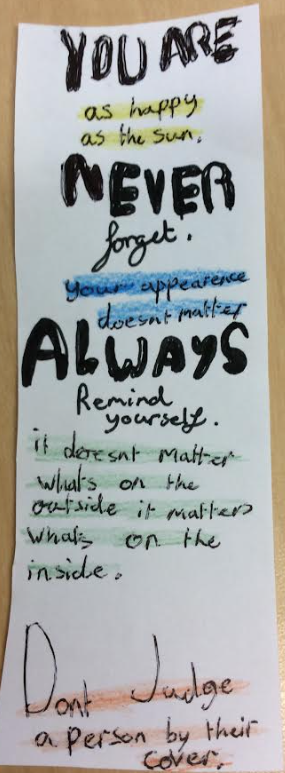 YOU ARE
as happy
as the sun.
NEVER
forget.
your appearence
doesnt matter
ALWAYS
Remind
yourself.
it doesnt matter
whats on the
outside it matters
whats on the
inside.
Dont Judge
a person by their
cover.